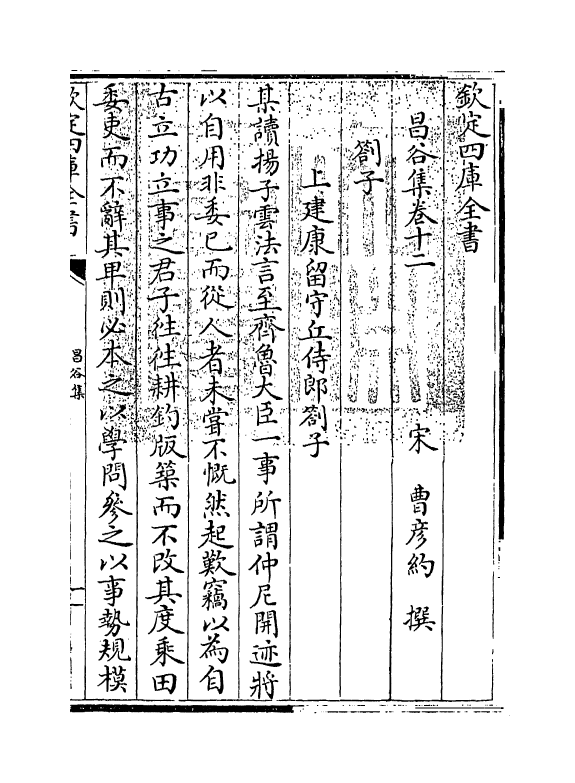 欽定四庫全書
昌谷集卷十二
宋 曹彥約 撰
劄子
上建康留守丘侍郎劄子
某讀揚子雲法言至齊魯大臣一事所謂仲尼開迹將
以自用非委已而從人者未嘗不慨然起歎竊以為自
古立功立事之君子徃徃耕釣版築而不改其度乘田
委吏而不辭其卑則必本之以學問參之以事勢規模
欽定四庫全書
昌谷集
一